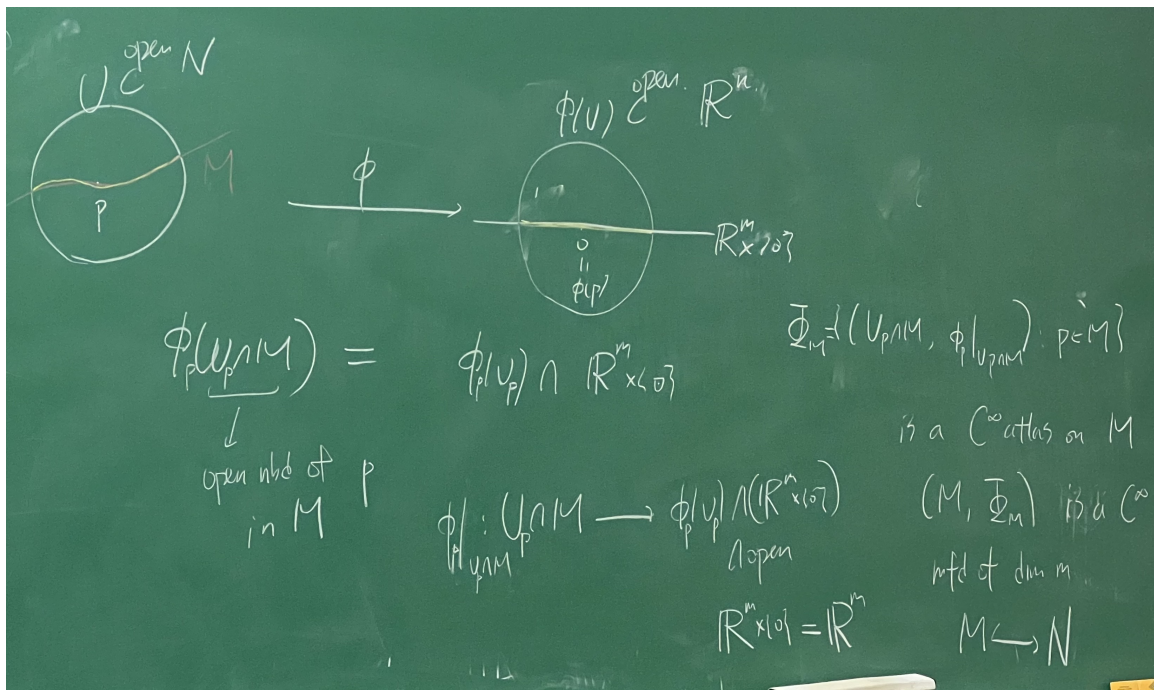 U ⊂^open N
M
p
ϕ
ϕ(U) ⊂^open. ℝ^n.
ℝ^m×{0}
0
=
ϕ(p)
ϕ_p(U_p∩M) = ϕ_p(U_p) ∩ ℝ^m×{0}
open nbd of p
in M
ϕ_p|_{U_p∩M} : U_p∩M → ϕ_p(U_p)∩(ℝ^m×{0})
∩open
ℝ^m×{0} = ℝ^m
Φ_M={(U_p∩M, ϕ_p|_{U_p∩M}) : p∈M}
is a C^∞ atlas on M
(M, Φ_M) is a C^∞
mfd of dim m
M ↪ N